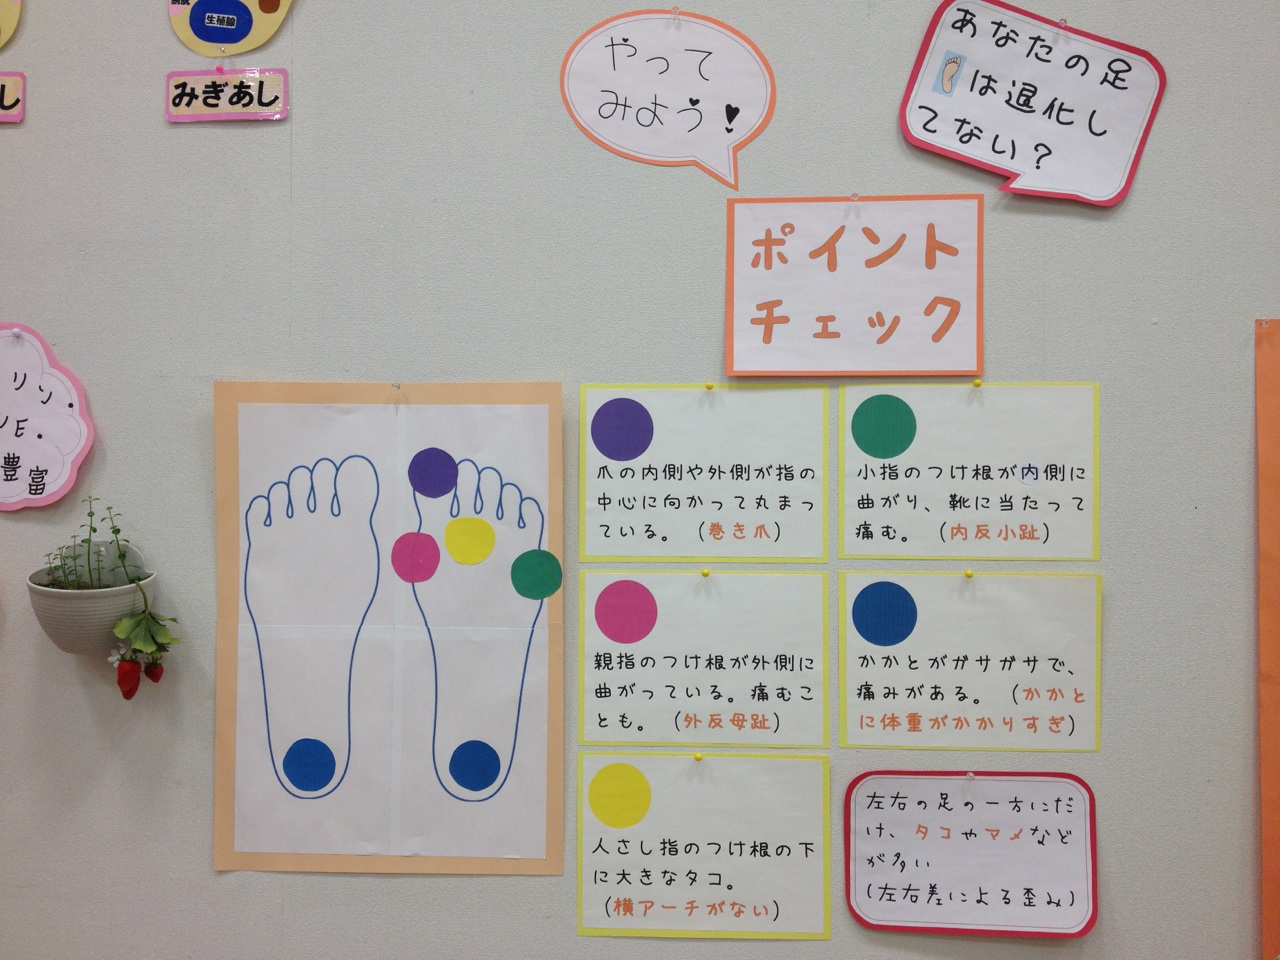 生殖腺
し
みぎあし
やって
みよう!
あなたの足
は退化し
てない?
ポイント
チェック
リン.
E.
豊富
爪の内側や外側が指の
中心に向かって丸まっ
ている。(巻き爪)
小指のつけ根が内側に
曲がり、靴に当たって
痛む。(内反小趾)
親指のつけ根が外側に
曲がっている。痛むこ
とも。(外反母趾)
かかとがガサガサで、
痛みがある。(かかと
に体重がかかりすぎ)
人さし指のつけ根の下
に大きなタコ。
(横アーチがない)
左右の足の一方にだ
け、タコやマメなど
が多い
(左右差による歪み)